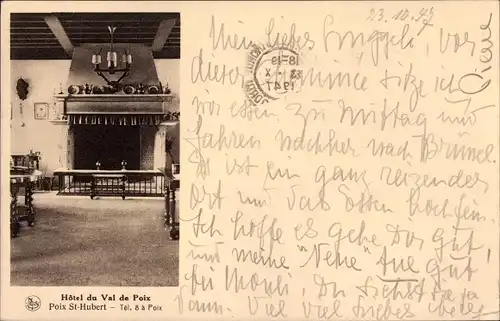 23.10.47
Mein liebes Bruggeli, vor
dieser cheminée sitze ich
wir essen zu Mittag und
fahren nachher nach Brüssel
Es ist ein ganz reizender
Ort und das Essen hochfein.
Ich hoffe es gehe Dir gut,
und meine "Nehe" tue gut
bei Monli. Du siehst sie ja
dann. Viel viel liebes
18-19
23 X
1947
Hôtel du Val de Poix
Poix St-Hubert – Tél. 8 à Poix